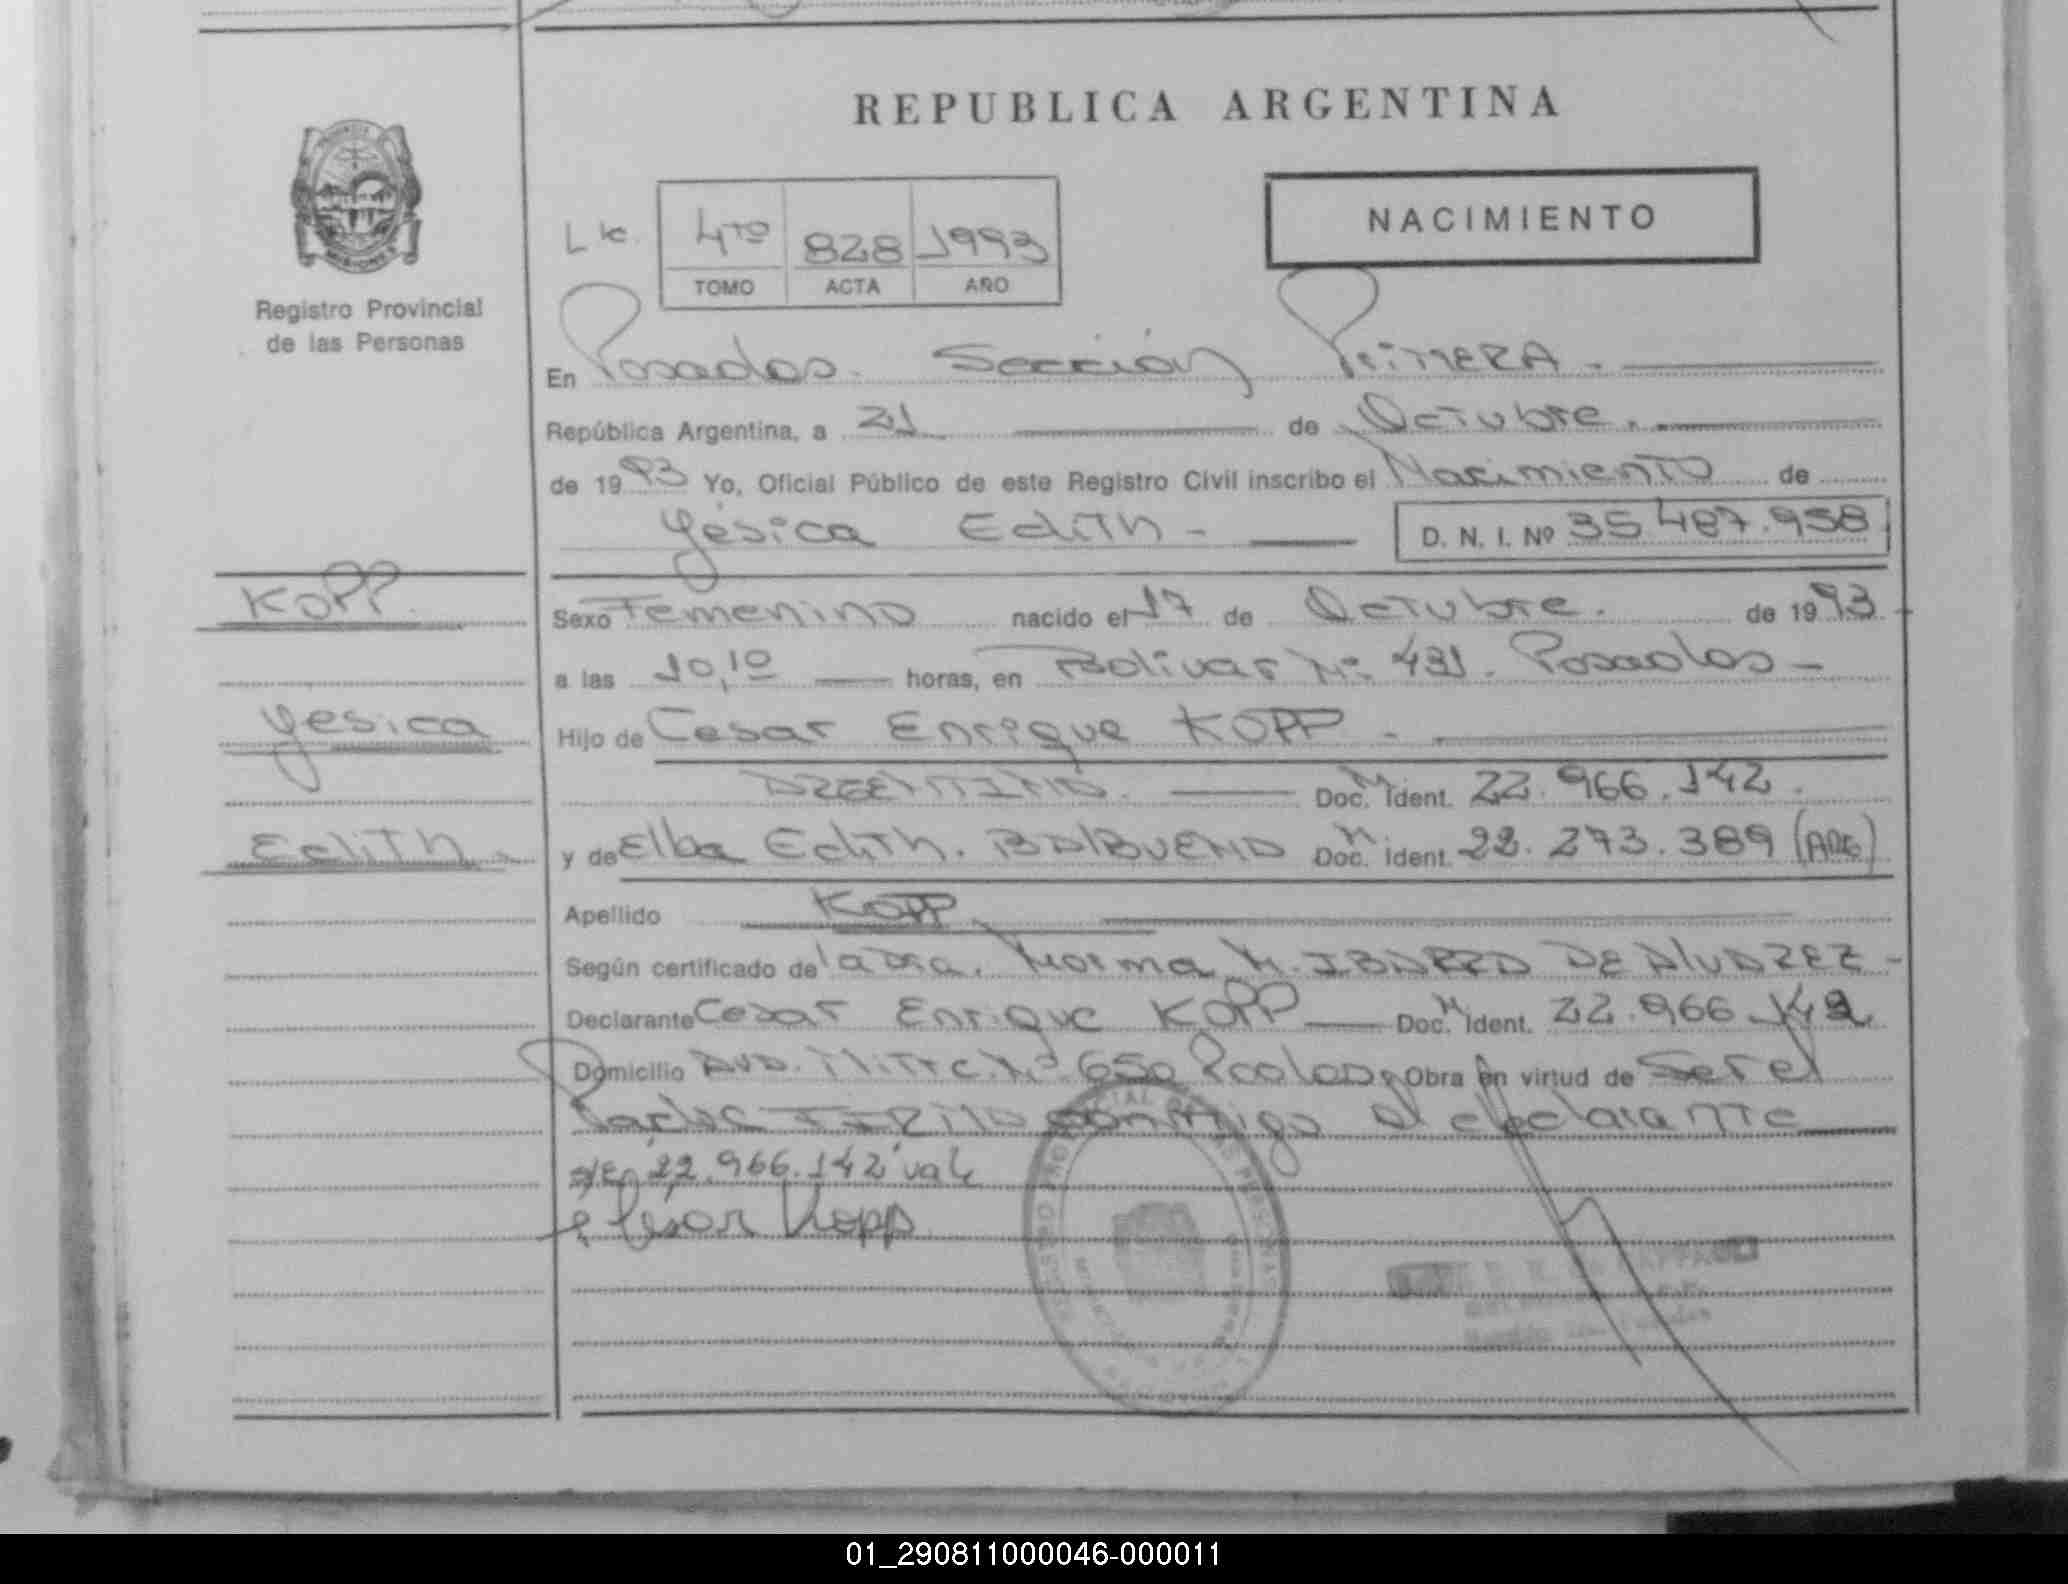 REPUBLICA ARGENTINA
NACIMIENTO
4to 828 1993
TOMO ACTA AÑO
Registro Provincial
de las Personas
En Posadas. Sección PRIMERA.
República Argentina, a 21 de Octubre.
de 1993 Yo, Oficial Público de este Registro Civil inscribo el Nacimiento de
Yésica Edith - D. N. I. Nº 35.487.958
KOPP.
Sexo Femenino nacido el 17 de Octubre. de 1993
a las 10,10 horas, en Bolivar Nº 431. Posadas -
Yesica
Hijo de Cesar Enrique KOPP -
ARGENTINO. Doc. Ident. 22.966.142.
Edith.
y de Elba Edith. BALBUENA Doc. Ident. 22.273.389 (ARG)
Apellido KOPP.
Según certificado de la Dra. Norma N. IBARRA DE ALVAREZ -
Declarante Cesar Enrique KOPP Doc. Ident. 22.966.142
Domicilio AVD. Mitre Nº 650 Posadas Obra en virtud de Ser el
Padre FIRMA conmigo el declarante
22.966.142 vale
Cesar Kopp
01_290811000046-000011